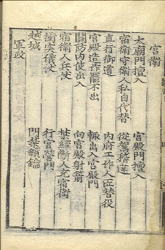 宮衛
太廟門擅入　宮殿門擅入
宿衛守衛人私自代替　從駕稽違
直行御道　內府工作人匠替役
宮殿造作罷不出　輒出入宮殿門
關防內使出入　向宮殿射箭
宿衛人兵仗　禁經斷人充宿衛
衝突儀仗　行宮營門
越城　門禁鎖鑰
軍政